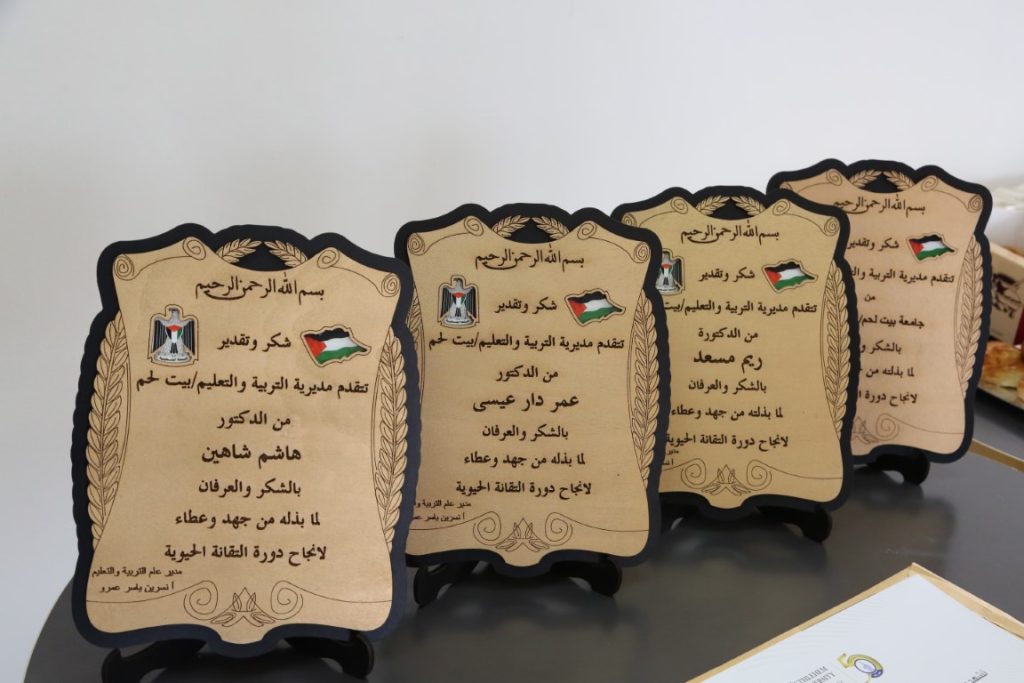 بسم الله الرحمن الرحيم
شكر وتقدير
تتقدم مديرية التربية والتعليم/بيت لحم
من الدكتور
هاشم شاهين
بالشكر والعرفان
لما بذله من جهد وعطاء
لانجاح دورة التقانة الحيوية
مدير علم التربية والتعليم
أ نسرين ياسر عمرو
بسم الله الرحمن الرحيم
شكر وتقدير
تتقدم مديرية التربية والتعليم/بيت لحم
من الدكتور
عمر دار عيسى
بالشكر والعرفان
لما بذله من جهد وعطاء
لانجاح دورة التقانة الحيوية
مدير علم التربية
أ نسرين ياسر
بسم الله الرحمن الرحيم
شكر وتقدير
تتقدم مديرية التربية والتعليم/بيت
من الدكتورة
ريم مسعد
بالشكر والعرفان
لما بذلته من جهد وعطاء
لانجاح دورة التقانة الحيوية
بسم الله الرحمن الرحيم
شكر وتقدير
تتقدم مديرية التربية والتعليم
من
جامعة بيت لحم/
بالشكر
لما بذلته من جهد
لانجاح دورة التقانة